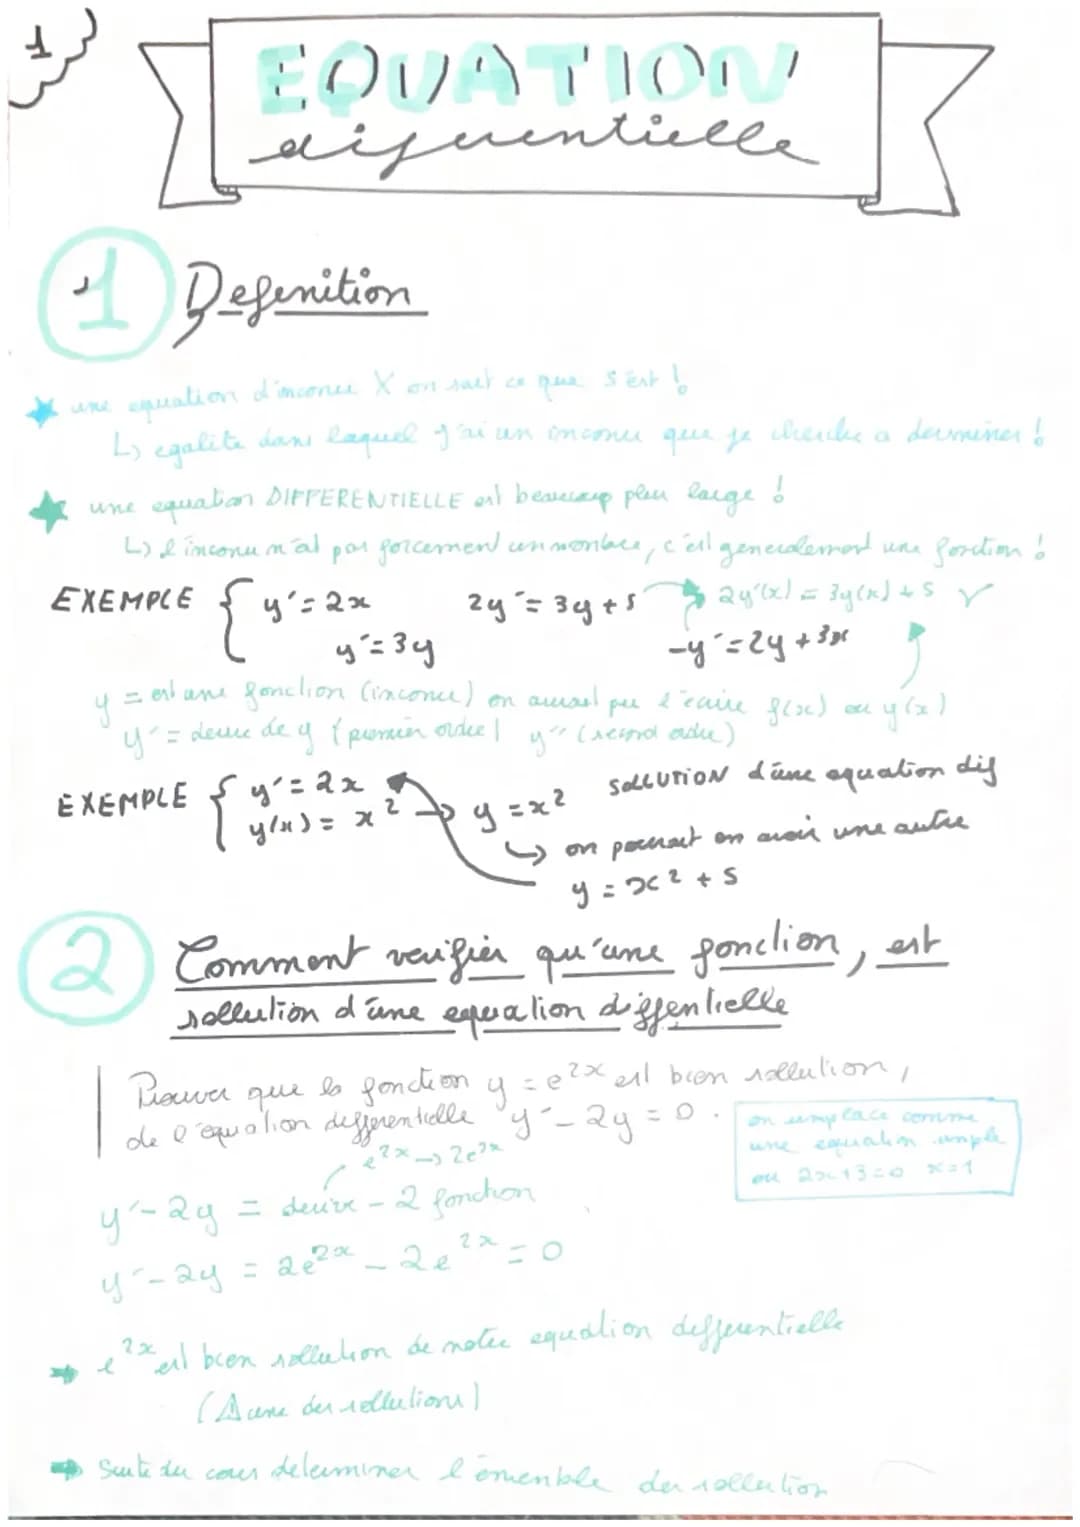 1
EQUATION
diferentielle
1 Defenition
une equation d'inconu X on sait ce que s'est !
↳ egalite dans laquel j'ai un inconu que je cherche a derminer !
une equation DIFFERENTIELLE est beaucoup plus large !
↳ l'inconu n'at pas forcement un nombre, c'est generalement une fonction !
EXEMPLE { y' = 2x 2y' = 3y + 5 → 2y'(x) = 3y(x) + 5 ✓
y' = 3y -y' = 2y + 3x
y = est une fonction (inconue) on aurait pu l'ecrire f(x) ou y(x)
y' = derive de y (premier ordre) y'' (second ordre)
EXEMPLE { y' = 2x SOLLUTION d'une equation dif
y(x) = x² → y = x²
↳ on pourrait en avoir une autre
y = x² + 5
2 Comment verifier qu'une fonction, est
sollution d'une equation diffentielle
Prouver que la fonction y = e^2x est bien sollution,
de l'equation defferentielle y' - 2y = 0.
on remplace comme
une equation simple
ou 2x+3=0 x=1
e^2x → 2e^2x
y' - 2y = derive - 2 fonction
y' - 2y = 2e^2x - 2e^2x = 0
→ e^2x est bien sollution de notre equation defferentielle
(⚠ une des sollutions)
→ Suite du cours determiner l'emenble des sollution